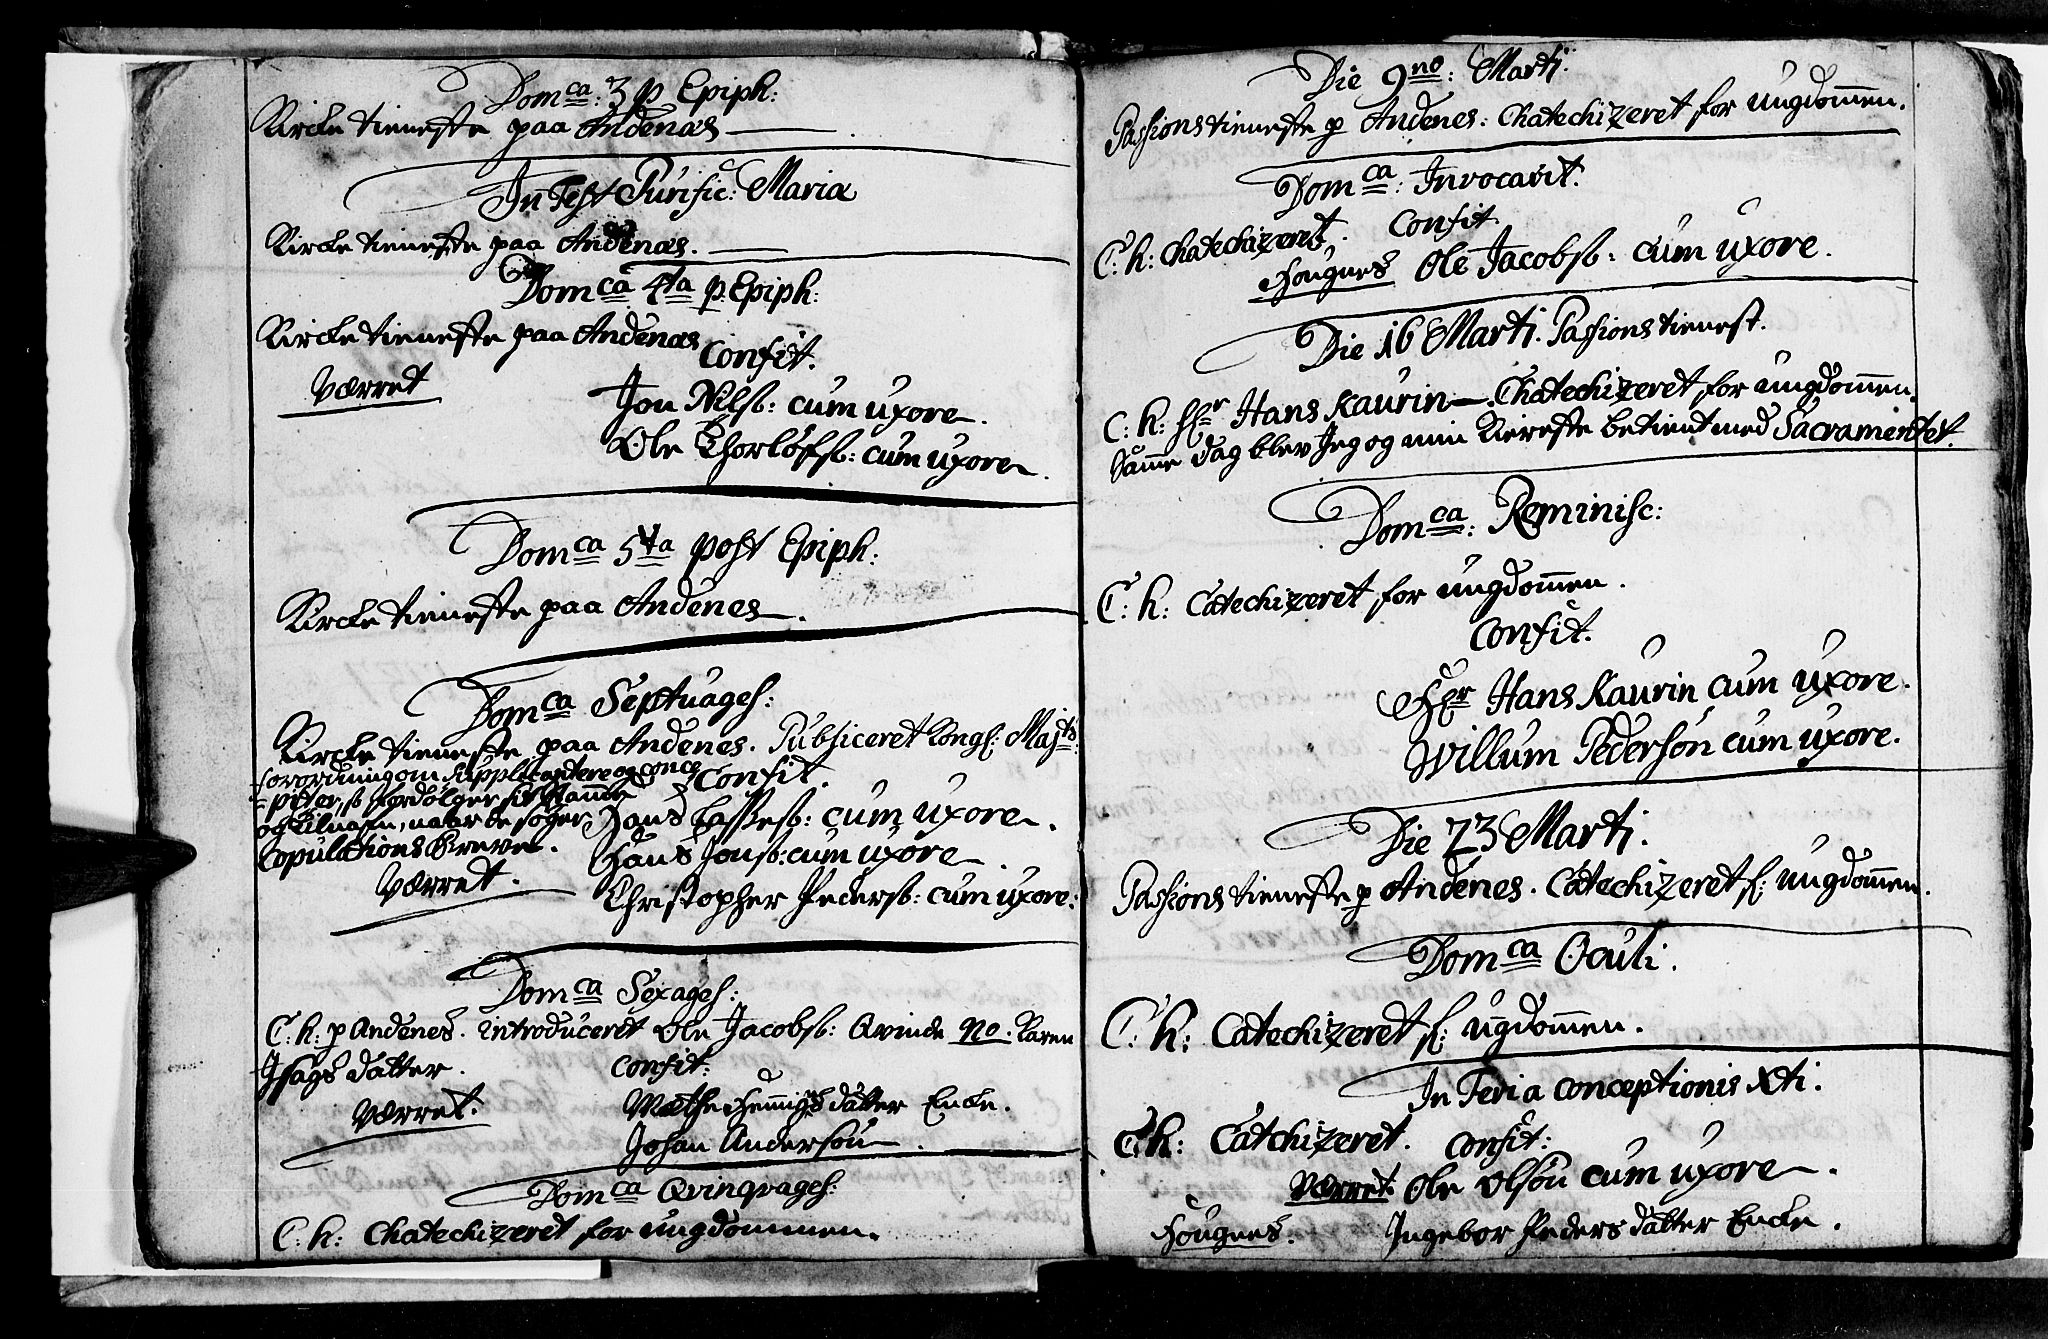 Dom<u>ca</u>: 3 p Epiph:
Kircke tieneste paa Andenæs
In Fest Purific: Maria
Kircke tieneste paa Andenæs.
Domca 4ta p. Epiph:
Kircke tieneste paa Andenæs
Confit.
Værret
Jon Nilss: cum uxore.
Ole Thorlofss: cum uxore.
Domca 5ta post Epiph:
Kircke tieneste paa Andenes.
Domca Septuages:
Kircke tieneste paa Andenes. Publiceret Kongl: Majts:
forordning om Supplicantere og conce
Confit.
-pister, s fordølger sit Nafne
og tilnafn, naar de søger
Hans cum uxore.
Copulations Breve.
Hans Jonss: cum uxore.
Værret.
Christopher Pederss: cum uxore.
Domca Sexages:
C. h: p Andenes. introduceret Ole Jacobss: Qvinde No. Karen
Isags datter.
Confit:
Værret.
Mætte Hennigs datter Encke.
Johan Anderson.
Domca Qvinqvages:
C. h: Chatechizeret for ungdommen.
Die 9no: Marti:
Passions tieneste p Andenes: Chatechizeret for ungdomen.
Domca: Invocavit.
C: h: Chatechizeret.
Confit.
Hougnes Ole Jacobss: cum uxore.
Die 16 Marti. Passions tienest.
C: h: Hr Hans Kaurin. Chatechizeret for ungdomen.
Same dag blev Jeg og min Kiereste betient med Sacramentet.
Domca: Reminisc:
C: h: Catechizeret for ungdomen.
Confit.
Hr Hans Kaurin cum uxore.
Willum Pederson cum uxore.
Die 23 Marti.
Passions tieneste p Andenes. Catechizeret f: ungdomen.
Domca Oculi.
C. h: Catechizeret f: ugdomen.
In Feria conceptionis Xti.
C. h: Catchizeret. Confit:
Værret. Ole Olson cum uxore.
Hougnes. Ingebor Peders datter Encke.